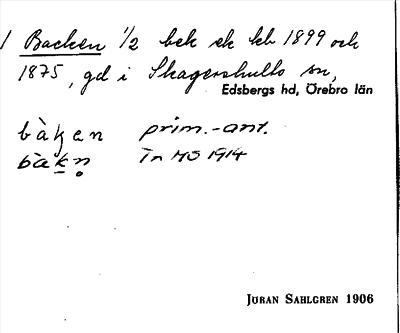 1 Backen 1/2 bek ek kb 1899 och
1875, gd i Skagershults sn,
Edsbergs hd, Örebro län
bàḳen prim.-ant.
bàḵn̥ Tn MS 1914
JÖRAN SAHLGREN 1906